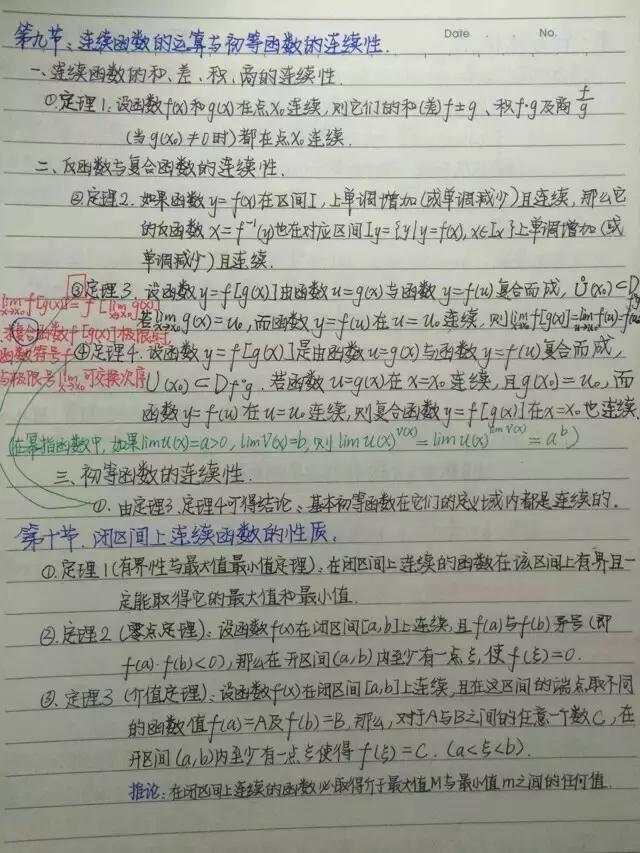 Date . . No.
第九节:连续函数的运算与初等函数的连续性.
一、连续函数的和、差、积、商的连续性.
①定理1:设函数f(x)和g(x)在点x₀连续,则它们的和(差)f±g、积f·g及商f/g
(当g(x₀)≠0时)都在点x₀连续.
二、反函数与复合函数的连续性.
②定理2.如果函数y=f(x)在区间Iₓ上单调增加(或单调减少)且连续,那么它
的反函数x=f⁻¹(y)也在对应区间Iy={y|y=f(x),x∈Ix}上单调增加(或
单调减少)且连续.
③定理3.设函数y=f[g(x)]由函数u=g(x)与函数y=f(u)复合而成,Ů(x₀)⊂D
若lim x→x₀ g(x)=u₀,而函数y=f(u)在u=u₀连续,则lim x→x₀ f[g(x)]=lim f(u)=f(u₀)
lim x→x₀ f[g(x)]=f[lim x→x₀ g(x)]
求复合函数f[g(x)]极限时,
函数符号f
与极限号lim x→x₀可交换次序
④定理4.设函数y=f[g(x)]是由函数u=g(x)与函数y=f(u)复合而成,
U(x₀)⊂Df∘g.若函数u=g(x)在x=x₀连续,且g(x₀)=u₀,而
函数y=f(u)在u=u₀连续,则复合函数y=f[g(x)]在x=x₀也连续.
(在幂指函数中,如果lim u(x)=a>0,lim v(x)=b,则lim u(x)^v(x)=lim u(x)^lim v(x)=a^b)
三、初等函数的连续性.
①.由定理3、定理4可得结论:基本初等函数在它们的定义域内都是连续的.
第十节.闭区间上连续函数的性质.
①.定理1(有界性与最大值最小值定理):在闭区间上连续的函数在该区间上有界且一
定能取得它的最大值和最小值.
②.定理2(零点定理):设函数f(x)在闭区间[a,b]上连续,且f(a)与f(b)异号(即
f(a)·f(b)<0),那么在开区间(a,b)内至少有一点ξ,使f(ξ)=0.
③.定理3(介值定理):设函数f(x)在闭区间[a,b]上连续,且在这区间的端点取不同
的函数值f(a)=A及f(b)=B,那么,对于A与B之间的任意一个数C,在
开区间(a,b)内至少有一点ξ使得f(ξ)=C.(a<ξ<b).
推论:在闭区间上连续的函数必取得介于最大值M与最小值m之间的任何值.